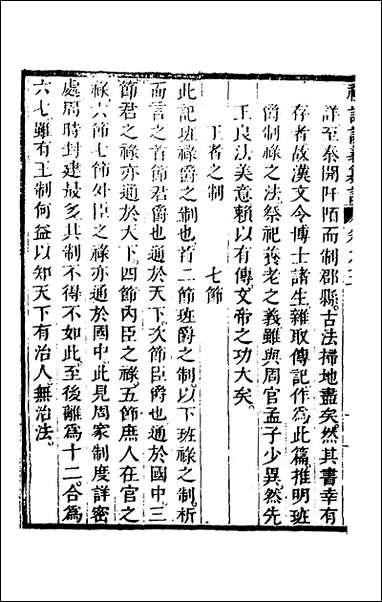 詳至秦開阡陌而制郡縣古法掃地盡矣然其書幸有
存者故漢文令博士諸生雜取傳記作為此篇推明班
爵制祿之法祭祀養老之義雖與周官孟子少異然先
王良法美意賴以有傳文帝之功大矣
王者之制 七節
此記班祿爵之制也首二節班爵之制以下班祿之制析
而言之首節君爵也通於天下次節臣爵也通於國中三
節君之祿亦通於天下四節內臣之祿五節庶人在官之
祿六節七節外臣之祿亦通於國中此見周家制度詳密
處周時封建最多其制不得不如此至後離為十二合為
六七雖有王制何益以知天下有治人無治法